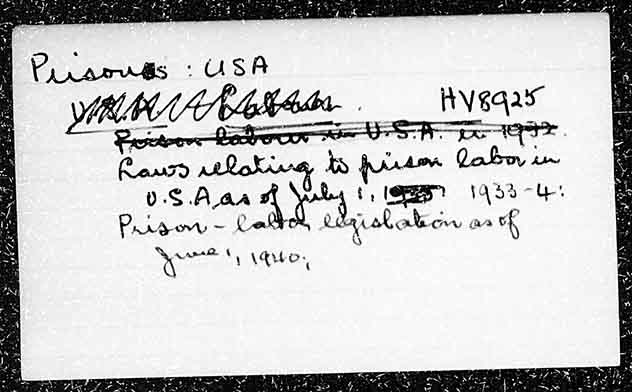 Prisons : USA
U.S.A. Labour. HV8925
Prison labour in U.S.A. in 1932.
Laws relating to prison labor in
U.S.A, as of July 1, 1933 1933-4:
Prison - labor legislation as of
June 1, 1940;